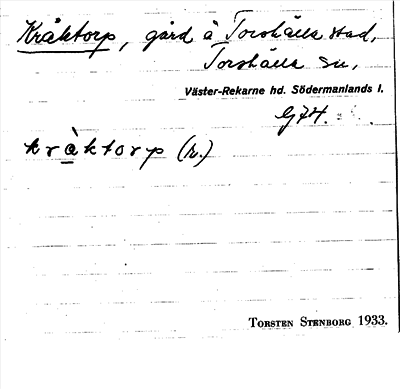 Kråktorp, gård å Torshälla stad,
Torshälla sn,
Väster-Rekarne hd. Södermanlands l.
kråktorp (n.)
TORSTEN STENBORG 1933.